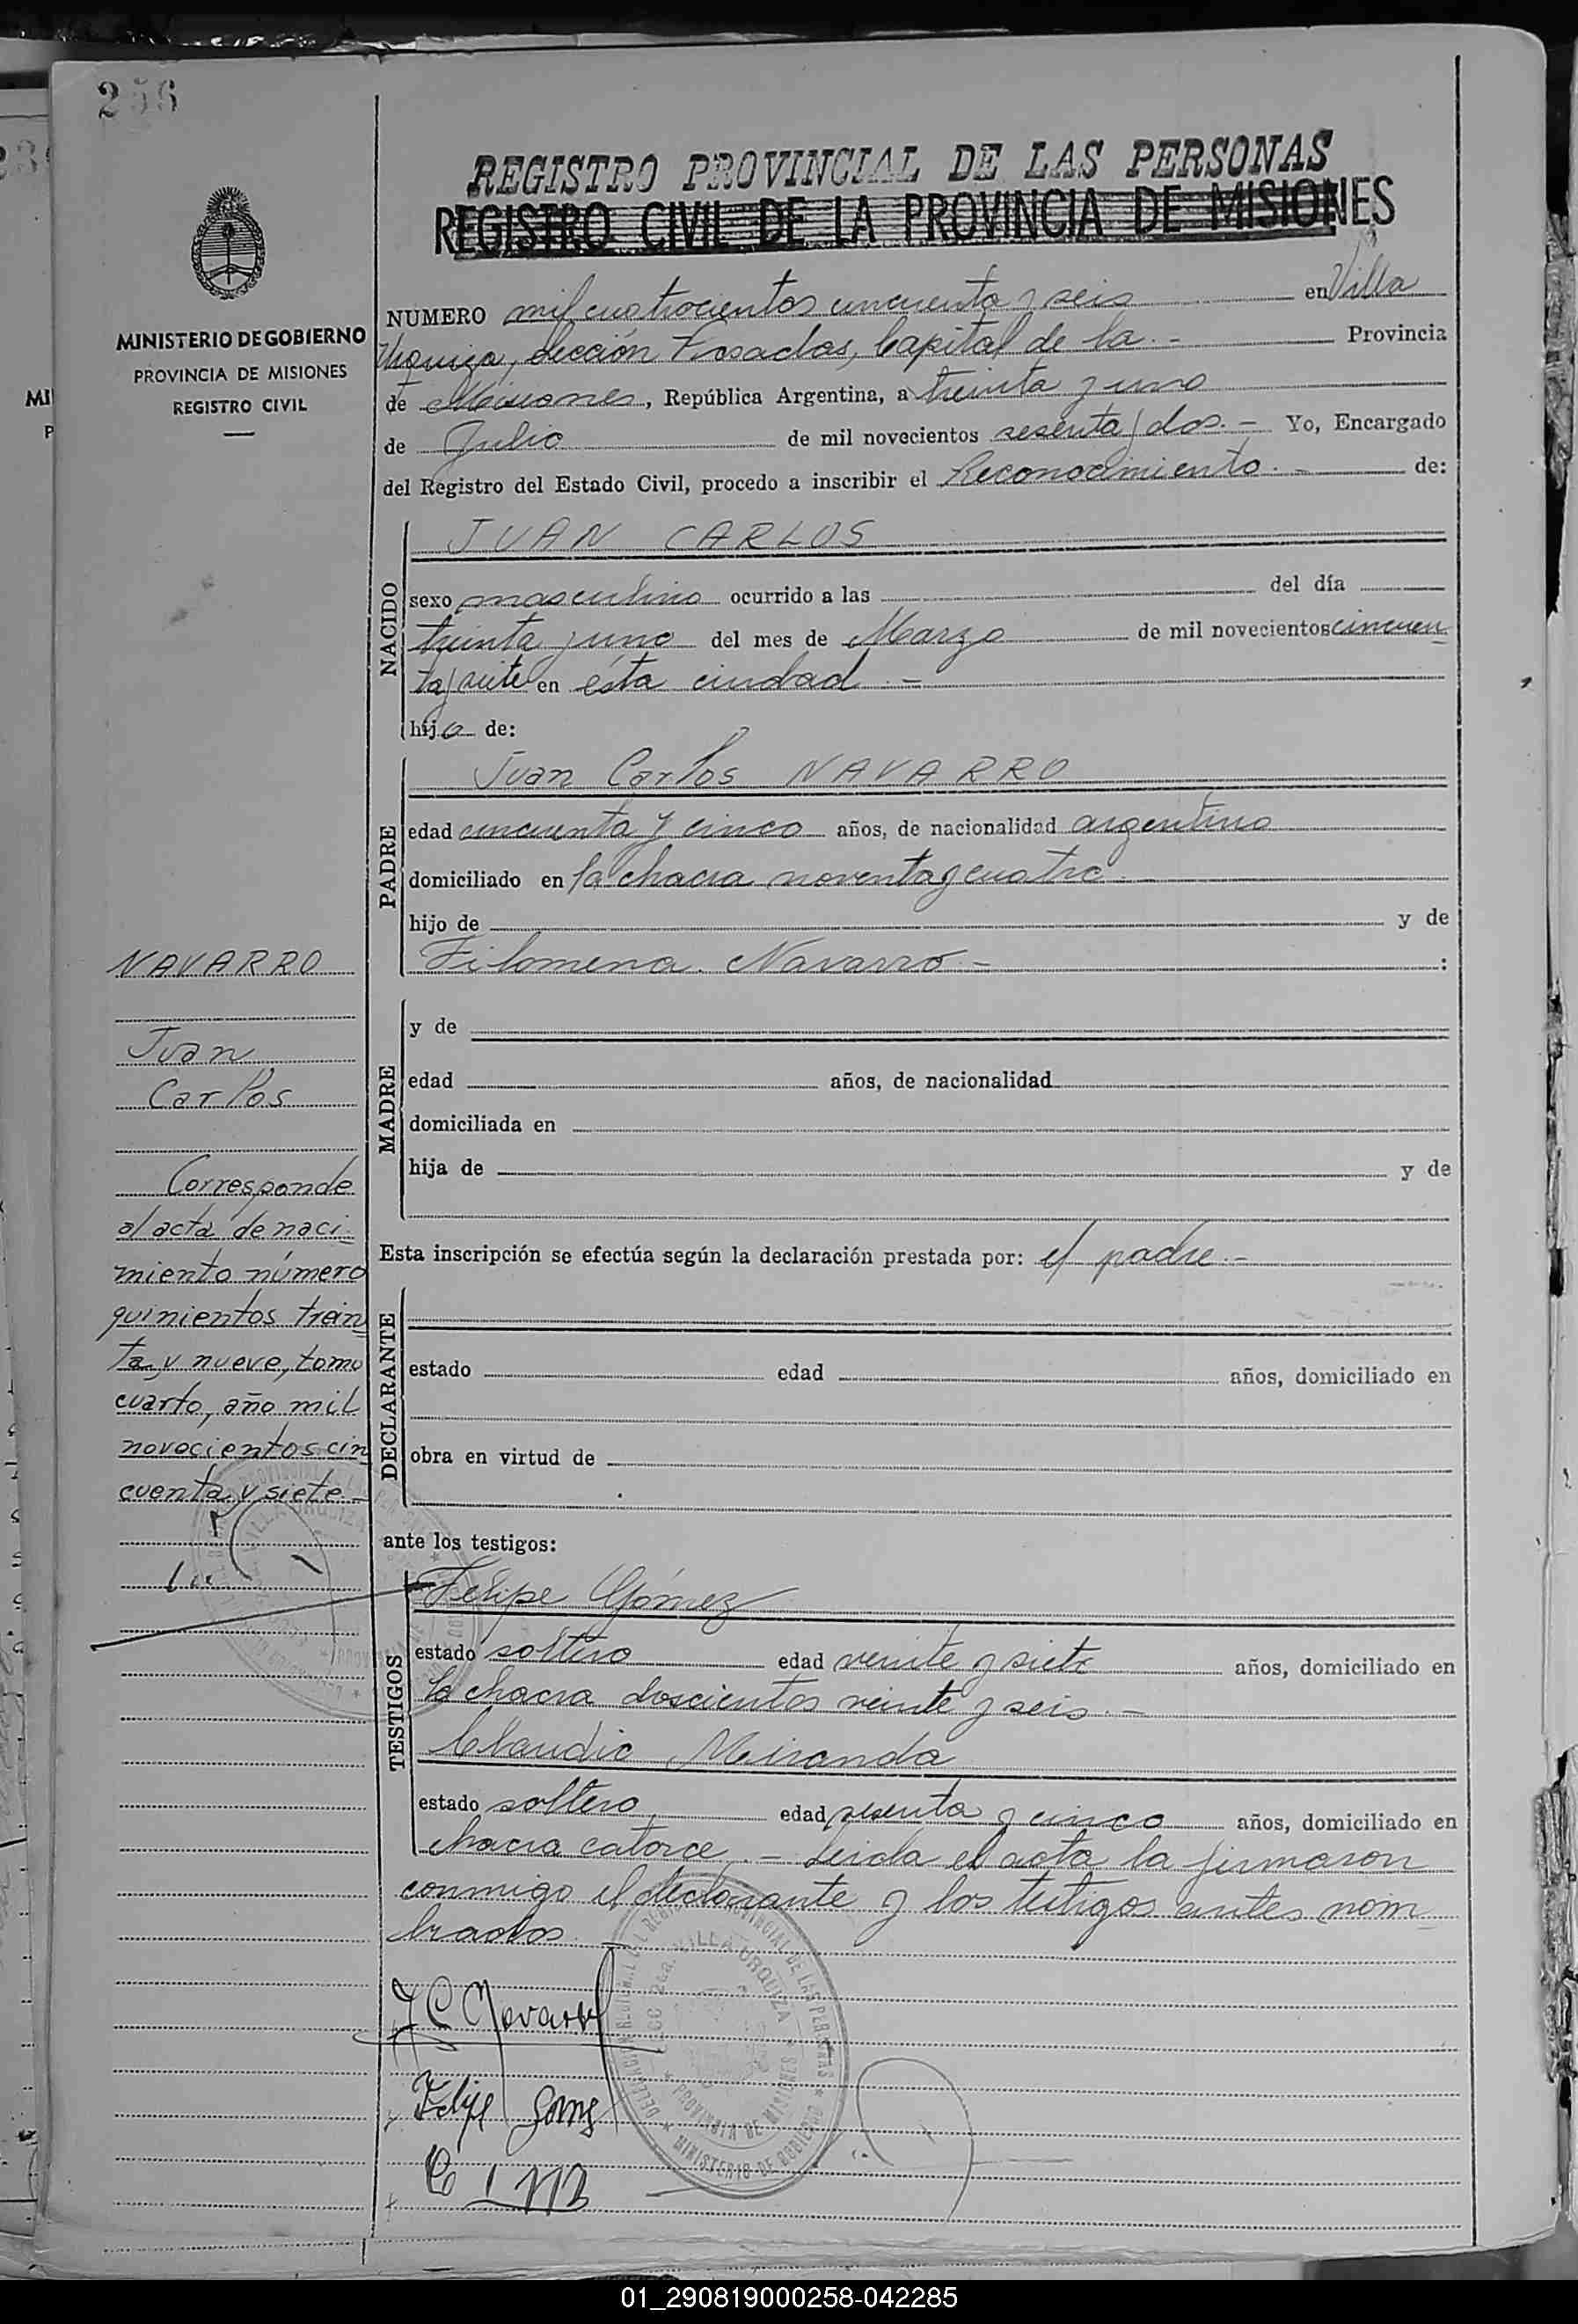 256
REGISTRO PROVINCIAL DE LAS PERSONAS
REGISTRO CIVIL DE LA PROVINCIA DE MISIONES
MINISTERIO DE GOBIERNO
PROVINCIA DE MISIONES
REGISTRO CIVIL
NUMERO mil cuatrocientos cincuenta y seis en Villa
Urquiza, sección Posadas, Capital de la.- Provincia
de Misiones, República Argentina, a treinta y uno
de Julio de mil novecientos sesenta y dos.- Yo, Encargado
del Registro del Estado Civil, procedo a inscribir el Reconocimiento.- de:
NACIDO
JUAN CARLOS
sexo masculino ocurrido a las del día
treinta y uno del mes de Marzo de mil novecientos cincuen
ta y siete en ésta ciudad.-
hijo de:
PADRE
Juan Carlos NAVARRO
edad cincuenta y cinco años, de nacionalidad argentino
domiciliado en la chacra noventa y cuatro
hijo de y de
Filomena Navarro.- :
MADRE
y de
edad años, de nacionalidad
domiciliada en
hija de y de
Esta inscripción se efectúa según la declaración prestada por: el padre.-
DECLARANTE
estado edad años, domiciliado en
obra en virtud de
ante los testigos:
TESTIGOS
Felipe Gómez
estado soltero edad veinte y siete años, domiciliado en
la chacra doscientos veinte y seis.-
Claudio Miranda
estado soltero edad sesenta y cinco años, domiciliado en
chacra catorce.- Leida el acta la firmaron
conmigo el declarante y los testigos antes nom
brados.-
NAVARRO
Juan
Carlos
Corresponde
al acta de naci-
miento número
quinientos trein
ta y nueve, tomo
cuarto, año mil
novecientos cin
cuenta y siete.-
J C Navarro
Felipe Gomez
C M
VILLA URQUIZA
PROVINCIA DE MISIONES
MINISTERIO DE GOBIERNO
01_290819000258-042285